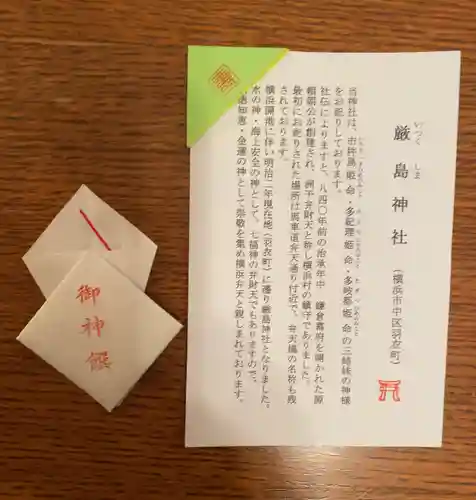 厳島神社
いつくしま
(横浜市中区羽衣町)
当神社は、市杵島姫命・多紀理姫命・多岐都姫命の三姉妹の神様
をお祀りしております。
社伝によりますと、八四〇年前の治承年中 鎌倉幕府を開かれた源
頼朝公が創建され、洲干弁財天と称し横浜村の鎮守でありました。
最初にお祀りされた場所は馬車道弁天通り付近で、弁天橋の名称も残
されております。
横浜開港に伴い明治二年現在地(羽衣町)に遷り厳島神社となりました。
水の神・海上安全の神として、七福神の弁財天でもありますので、
知恵・金運の神として崇敬を集め横浜弁天と親しまれております。
御神饌